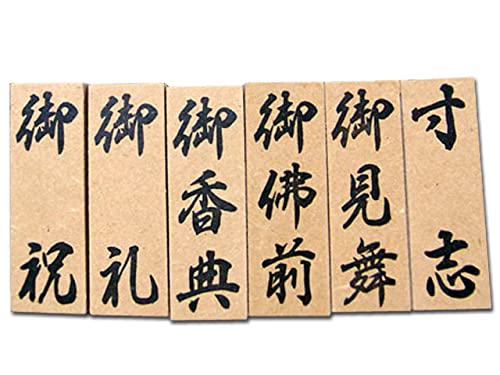 御祝
御礼
御香典
御佛前
御見舞
寸志